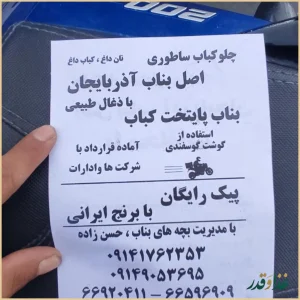 200
چلوکباب ساطوری
نان داغ ، کباب داغ
اصل بناب آذربایجان
با ذغال طبیعی
بناب پایتخت کباب
استفاده از
گوشت گوسفندی
آماده قرارداد با
شرکت ها وادارات
پیک رایگان
با برنج ایرانی
با مدیریت بچه های بناب ، حسن زاده
۰۹۱۴۱۷۶۲۳۵۳
۰۹۱۴۹۰۵۳۶۹۵
۶۶۹۲۰۴۱۱ – ۶۶۵۹۶۹۰۹